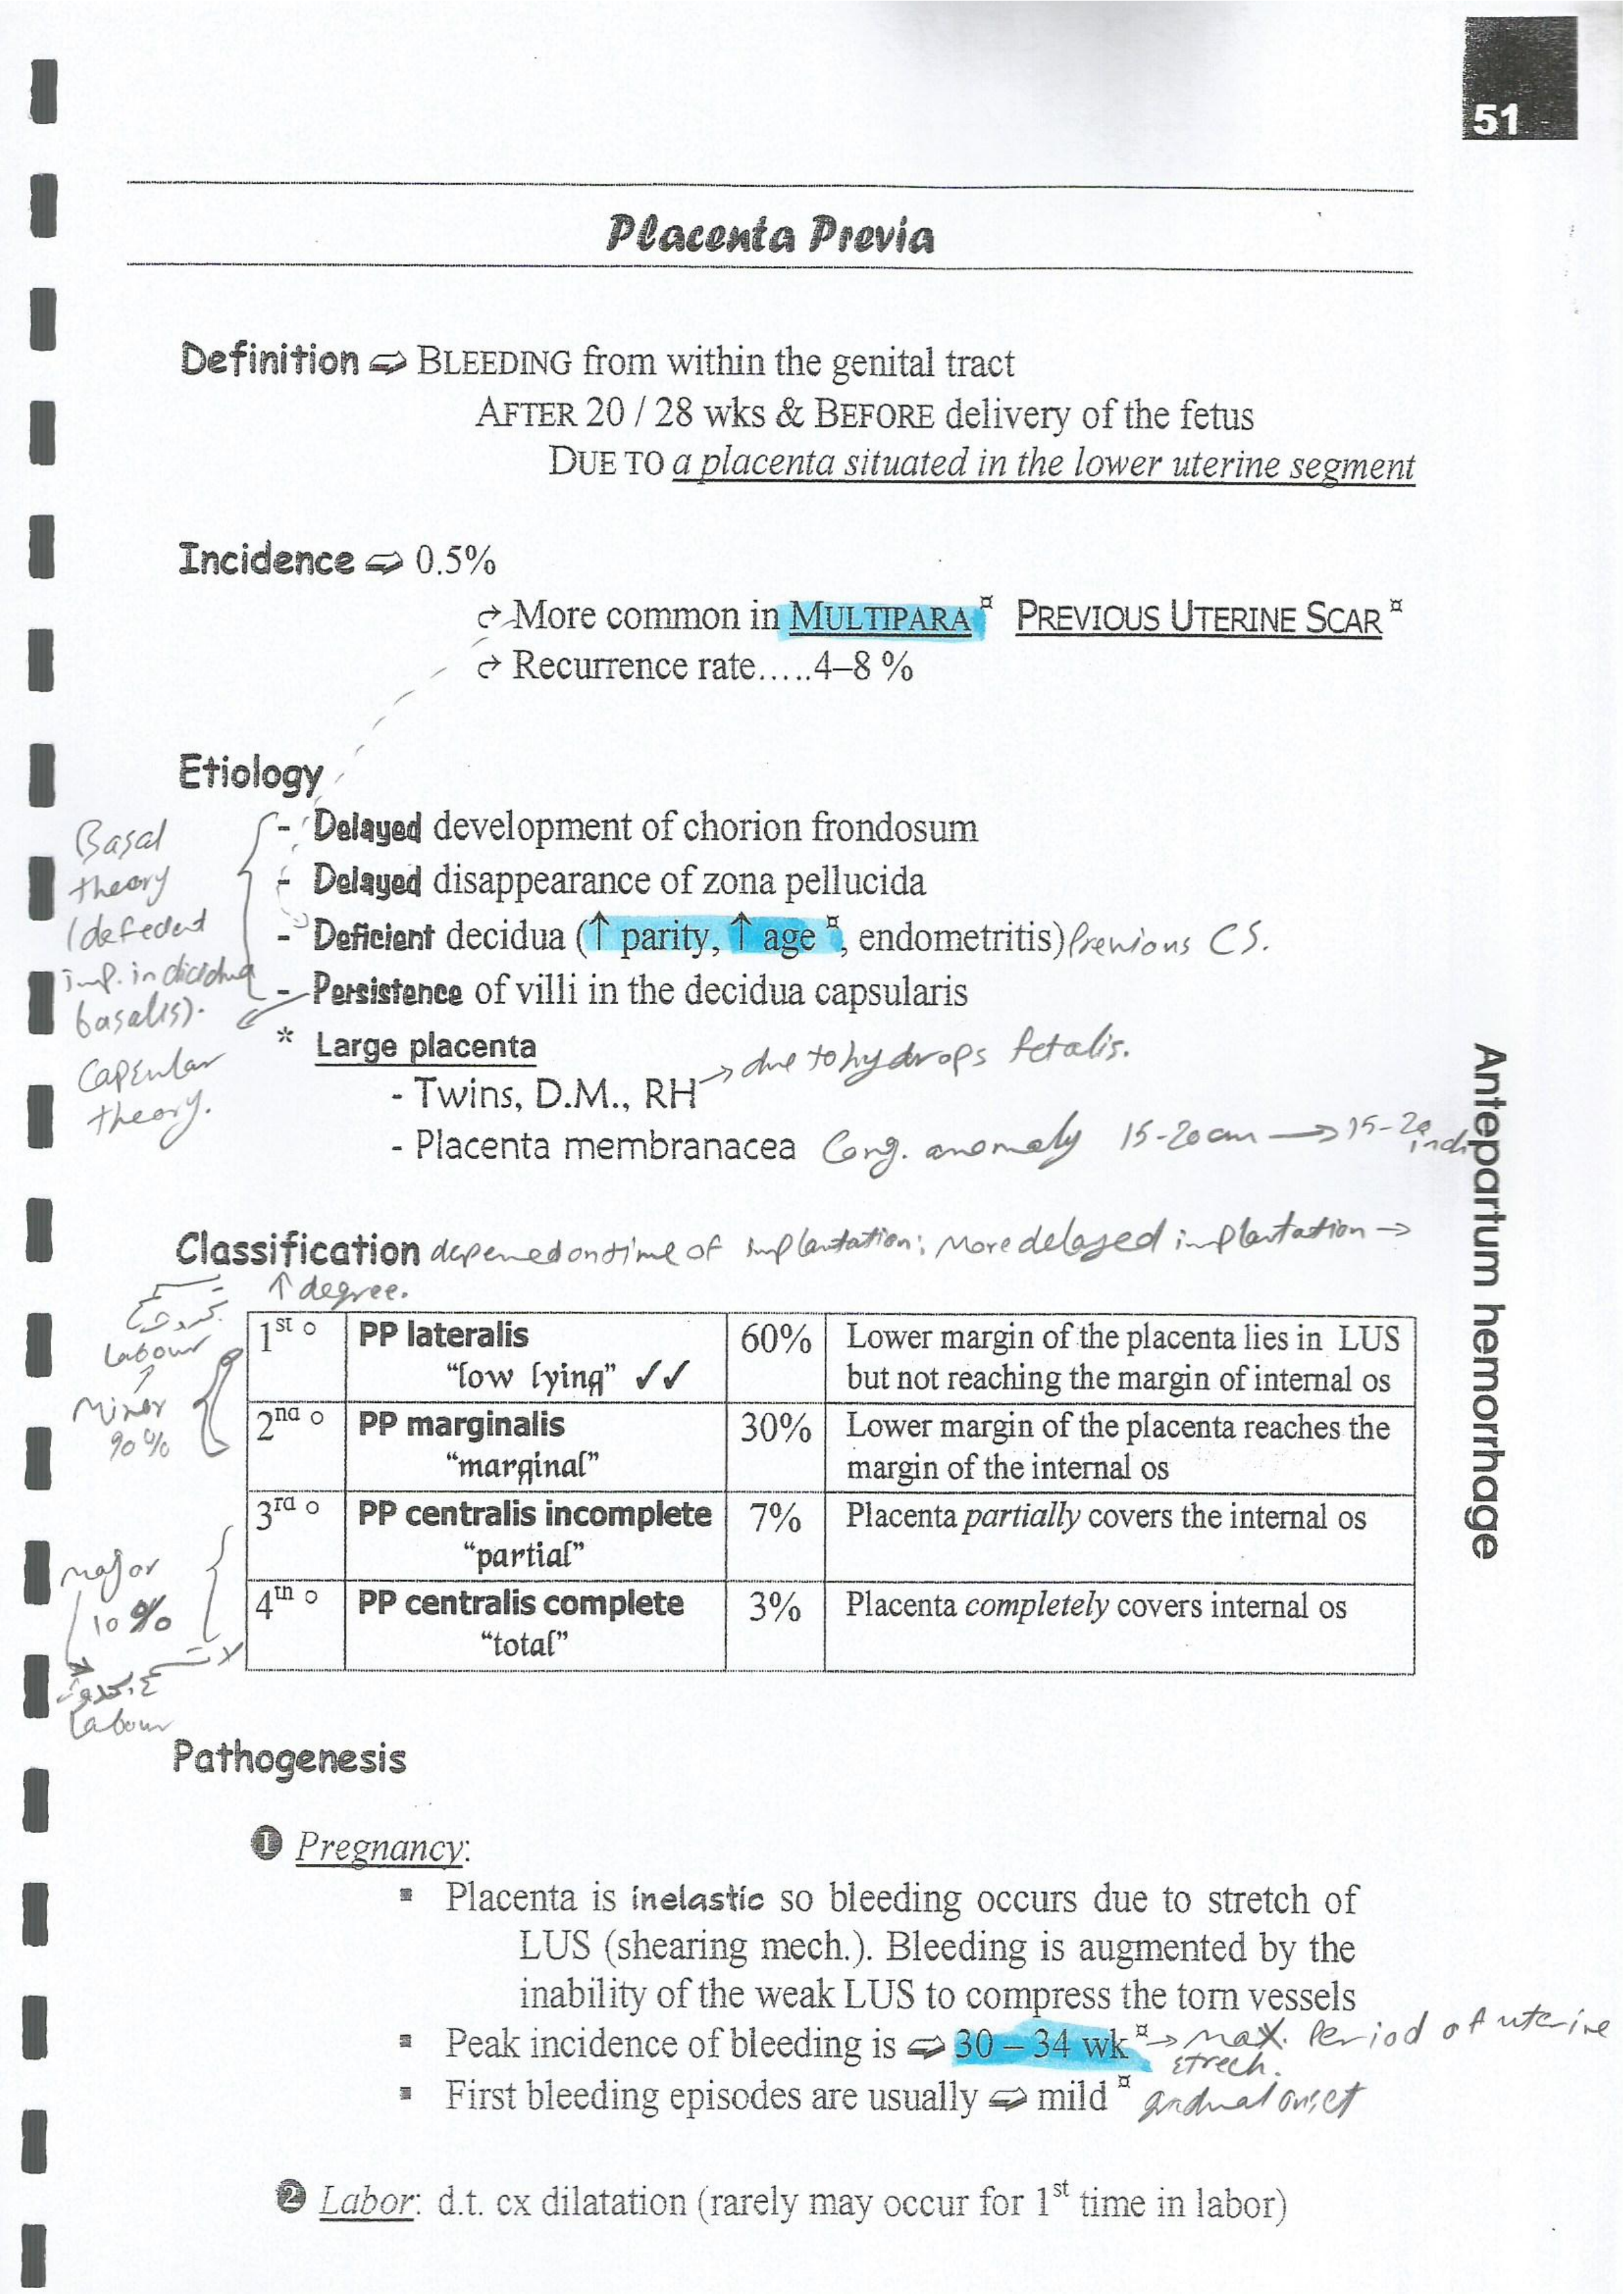 51
Placenta Previa
Definition ⇨ BLEEDING from within the genital tract
AFTER 20 / 28 wks & BEFORE delivery of the fetus
DUE TO a placenta situated in the lower uterine segment
Incidence ⇨ 0.5%
More common in MULTIPARA ¤ PREVIOUS UTERINE SCAR ¤
Recurrence rate.....4–8 %
Etiology
- Delayed development of chorion frondosum
- Delayed disappearance of zona pellucida
- Deficient decidua (↑ parity, ↑ age ¤, endometritis) Previous CS.
- Persistence of villi in the decidua capsularis
Basal
theory
imp. in
basalis).
Capsular
theory.
* Large placenta
- Twins, D.M., RH → due to hydrops fetalis.
- Placenta membranacea Cong. anomaly 15-20 cm → 15-20
Classification depened on time of implantation: More delayed implantation →
↑ degree.
Labour
Minor
90%
1st o PP lateralis 60% Lower margin of the placenta lies in LUS
"low lying" ✓✓ but not reaching the margin of internal os
2nd o PP marginalis 30% Lower margin of the placenta reaches the
"marginal" margin of the internal os
3rd o PP centralis incomplete 7% Placenta partially covers the internal os
"partial"
4th o PP centralis complete 3% Placenta completely covers internal os
"total"
major
10%
Labour
Pathogenesis
❶ Pregnancy:
▪ Placenta is inelastic so bleeding occurs due to stretch of
LUS (shearing mech.). Bleeding is augmented by the
inability of the weak LUS to compress the torn vessels
▪ Peak incidence of bleeding is ⇨ 30 – 34 wk ¤ → max. Period of uterine
strech.
▪ First bleeding episodes are usually ⇨ mild ¤ gradual onset
❷ Labor: d.t. cx dilatation (rarely may occur for 1st time in labor)
Antepartum hemorrhage